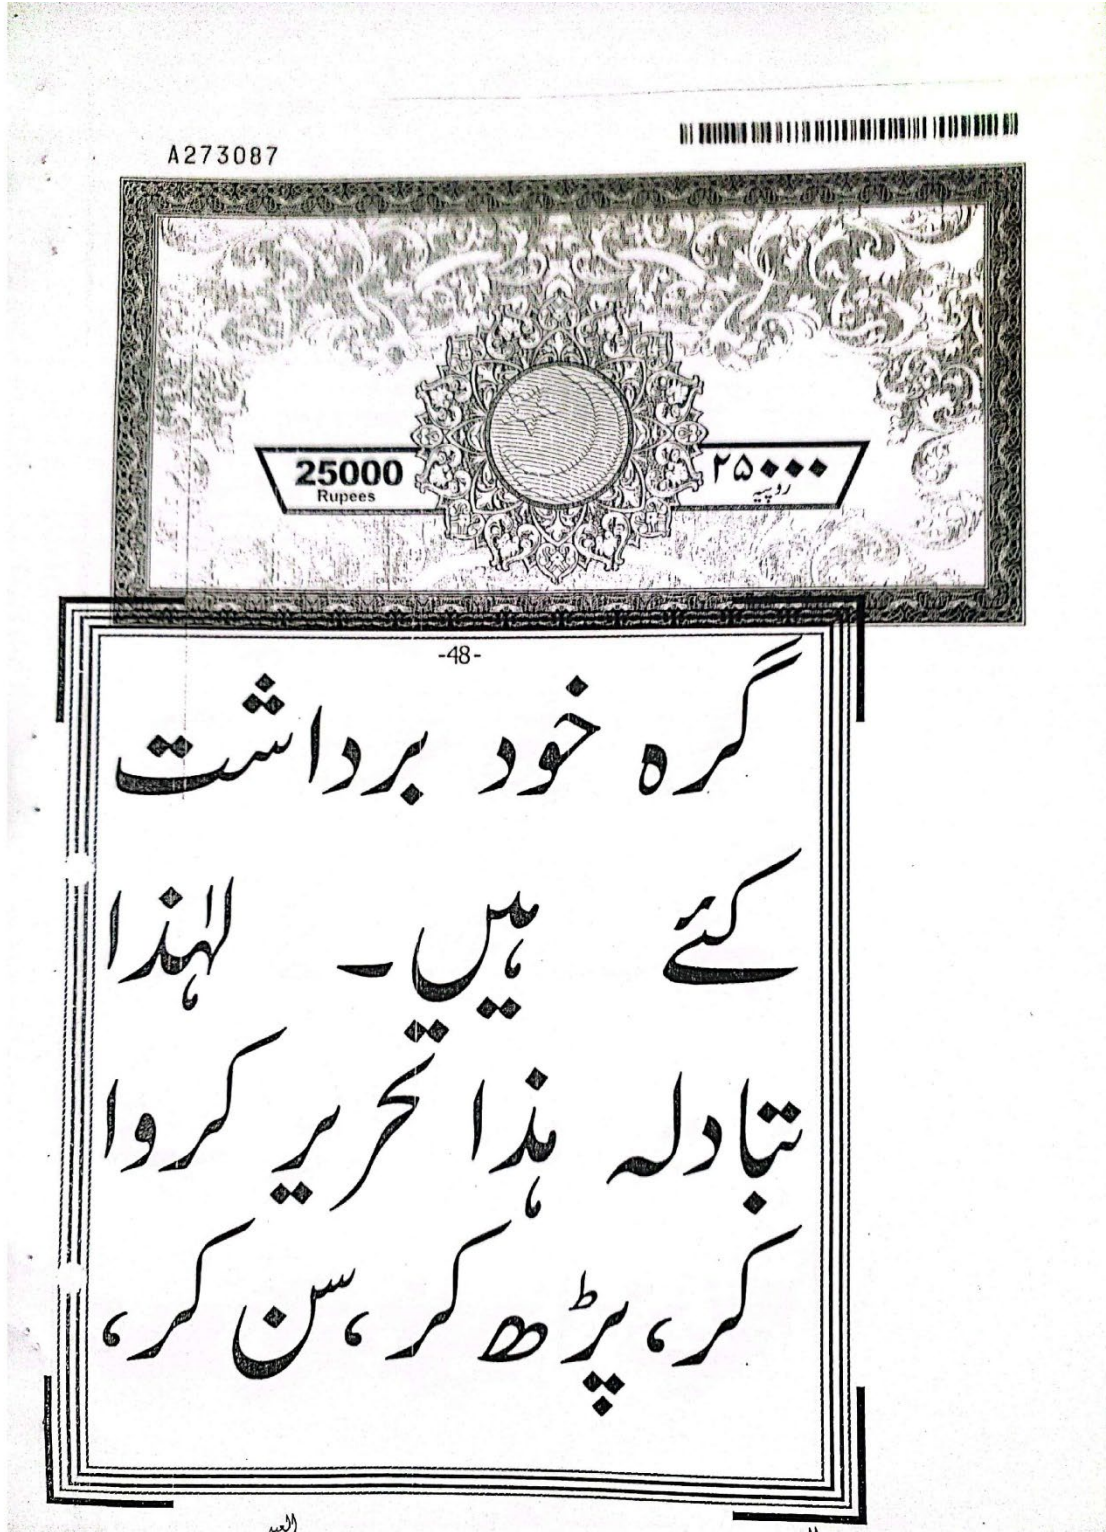 A273087
25000
Rupees
۲۵۰۰۰
روپیہ
-48-
گرہ خود برداشت
کئے ہیں۔ لہٰذا
تبادلہ ہذا تحریر کروا
کر، پڑھ کر، سن کر،
العبد